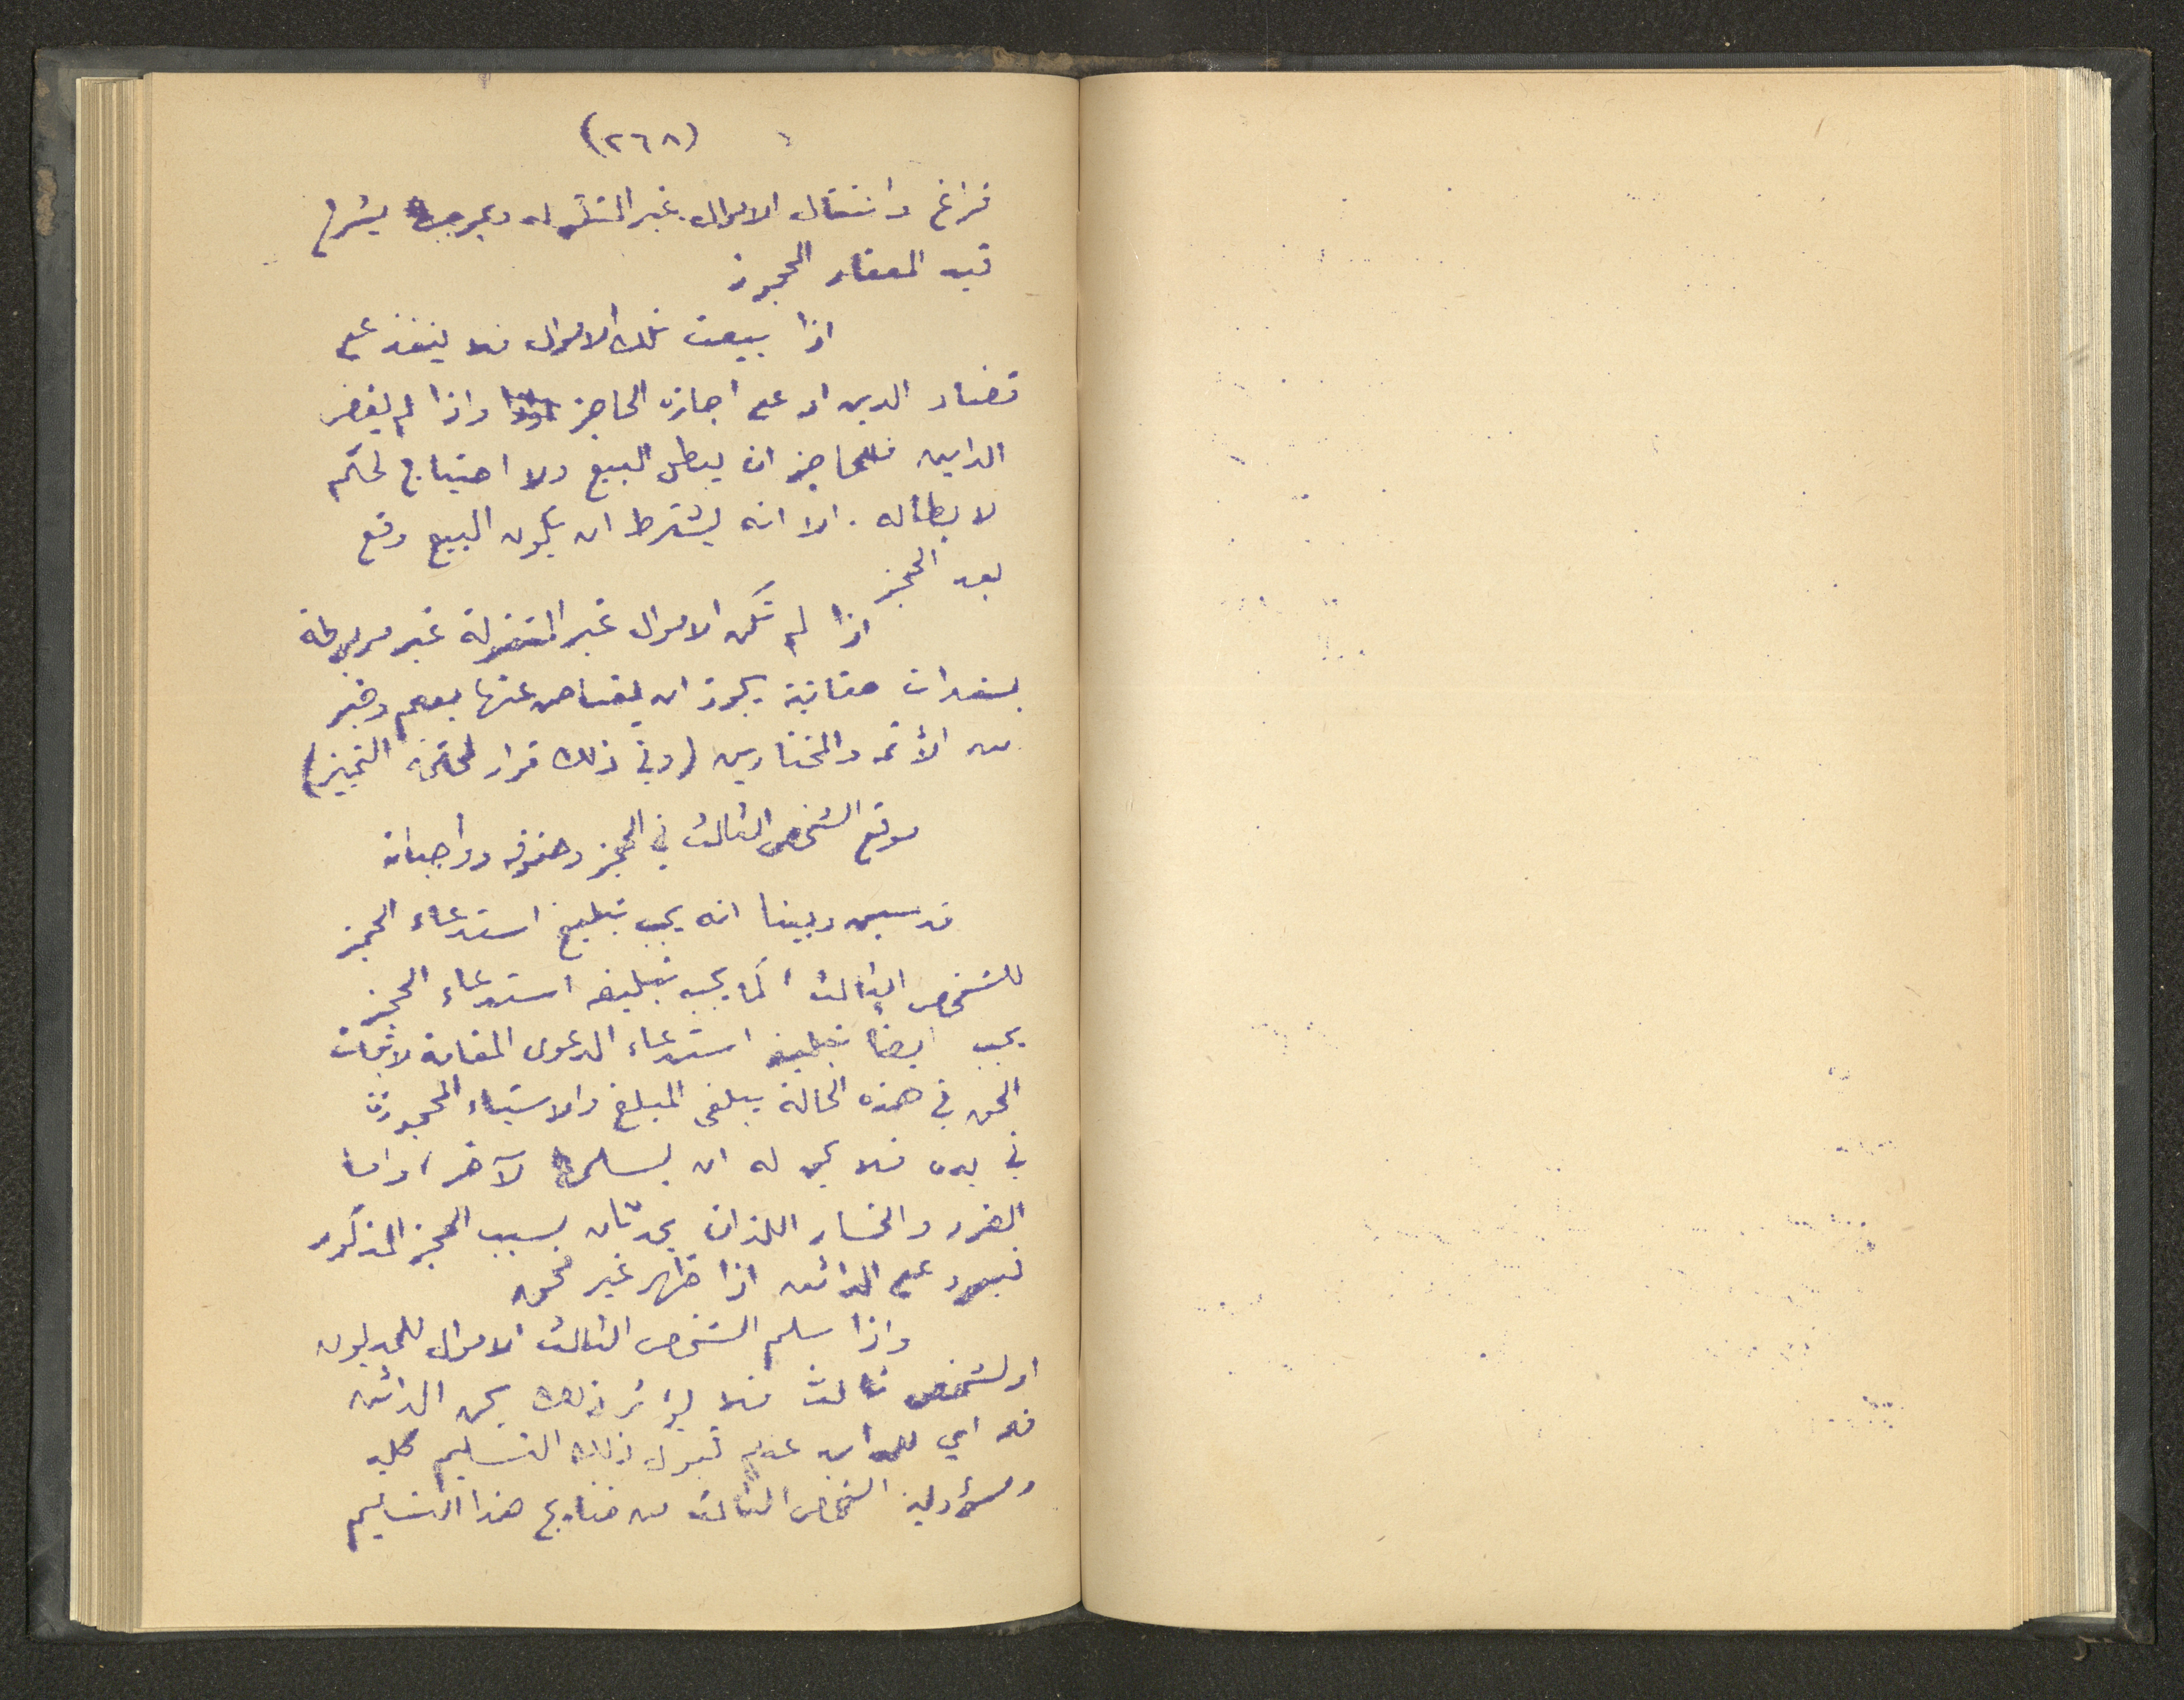 (٢٦٨)
فراغ وانتقال الاموال غير المنقوله وبموجبه يشرح
قيد العقار المحجوز
اذا بيعت تلك الاموال فلا ينفذ على
قضاء الدين او على اجازة الحاجز واذا لم يقض
الدايه فللحاجز ان يبطل البيع ولا احتياج لحكم
لابطاله . الا انه يشترط ان يكون البيع وقع
بعد الحجز
اذا لم تكن الاموال غير المنقولة غير مربوطة
بسندات خاقانية يجوز ان يعتاض عنها بعلم وخبر
من الأئمه والمختارين (وفي ذلك قرار لمحكمة التمييز)
موقع الشخص الثالث في الحجز وحقوقه وواجباته
قد سبق وبينا انه يجب تبليغ استدعاء الحجز
للشخص الثالث كما يجب تبليغه استدعاء الحجز
يجب ايضاً تبليغه استدعاء الدعوى المقامة لاثبات
الحق في هذه الحالة يبلغى المبلغ والاشياء المحجوزة
في يده فلا يحق له ان يسلمها لآخر، واما
الضرر والخسار اللذان يحدثان بسبب الحجز المذكور
فيعود على الدائن اذا ظهر غير محق
واذا سلم الشخص الثالث الاموال للمديون
او لشخص ثالث فلا يؤثر ذلك بحق الدائن
فله اي للدائن عدم قبول ذلك التسليم كليه
ومسؤولية الشخص الثالث من نتايج هذا التسليم